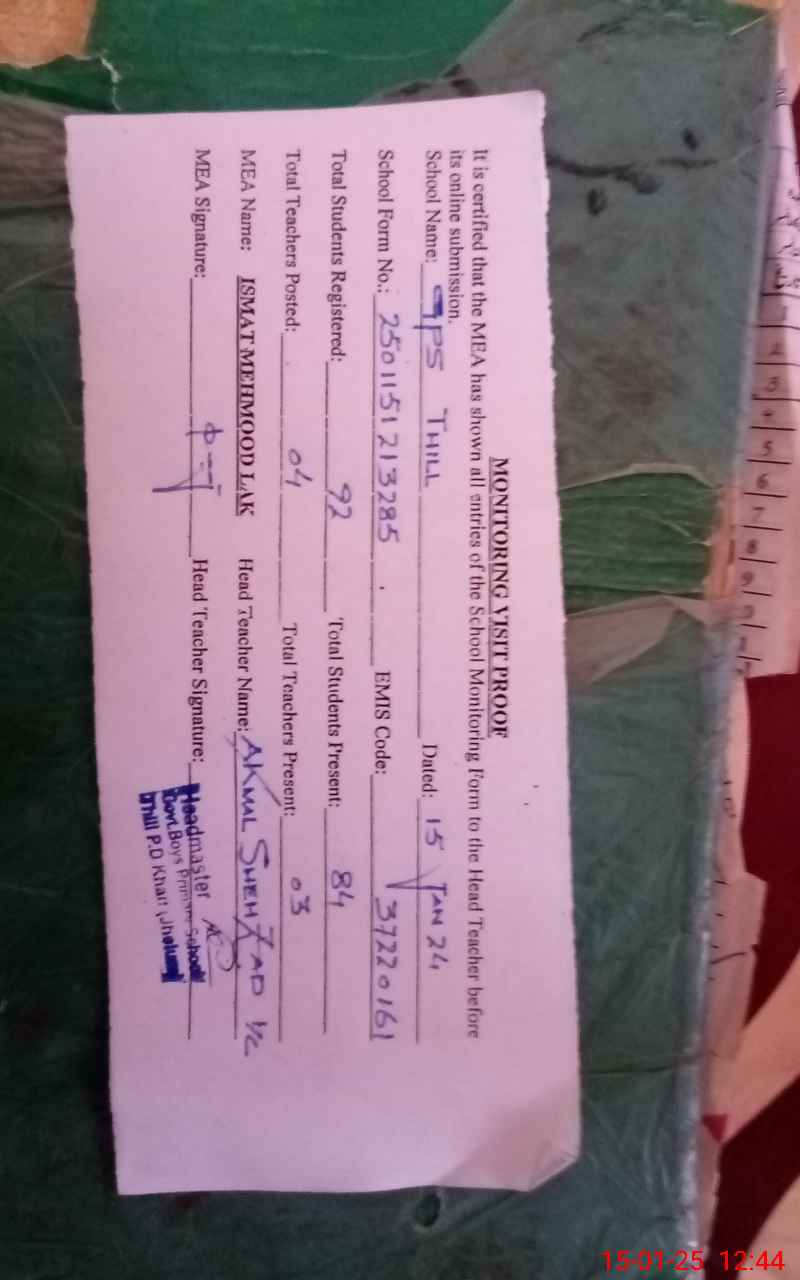 MONITORING VISIT PROOF
It is certified that the MEA has shown all entries of the School Monitoring Form to the Head Teacher before
its online submission.
School Name: GPS THILL Dated: 15 JAN 24
School Form No.: 2501151213285 EMIS Code: 37220161
Total Students Registered: 92 Total Students Present: 84
Total Teachers Posted: 04 Total Teachers Present: 03
MEA Name: ISMAT MEHMOOD LAK Head Teacher Name: AKMAL SHEHZAD I/C
MEA Signature: Head Teacher Signature:
Headmaster
Govt. Boys Primary School
Thill P.D Khan (Jhelum)
1
2
3
4
5
6
7
8
9
15-01-25 12:44